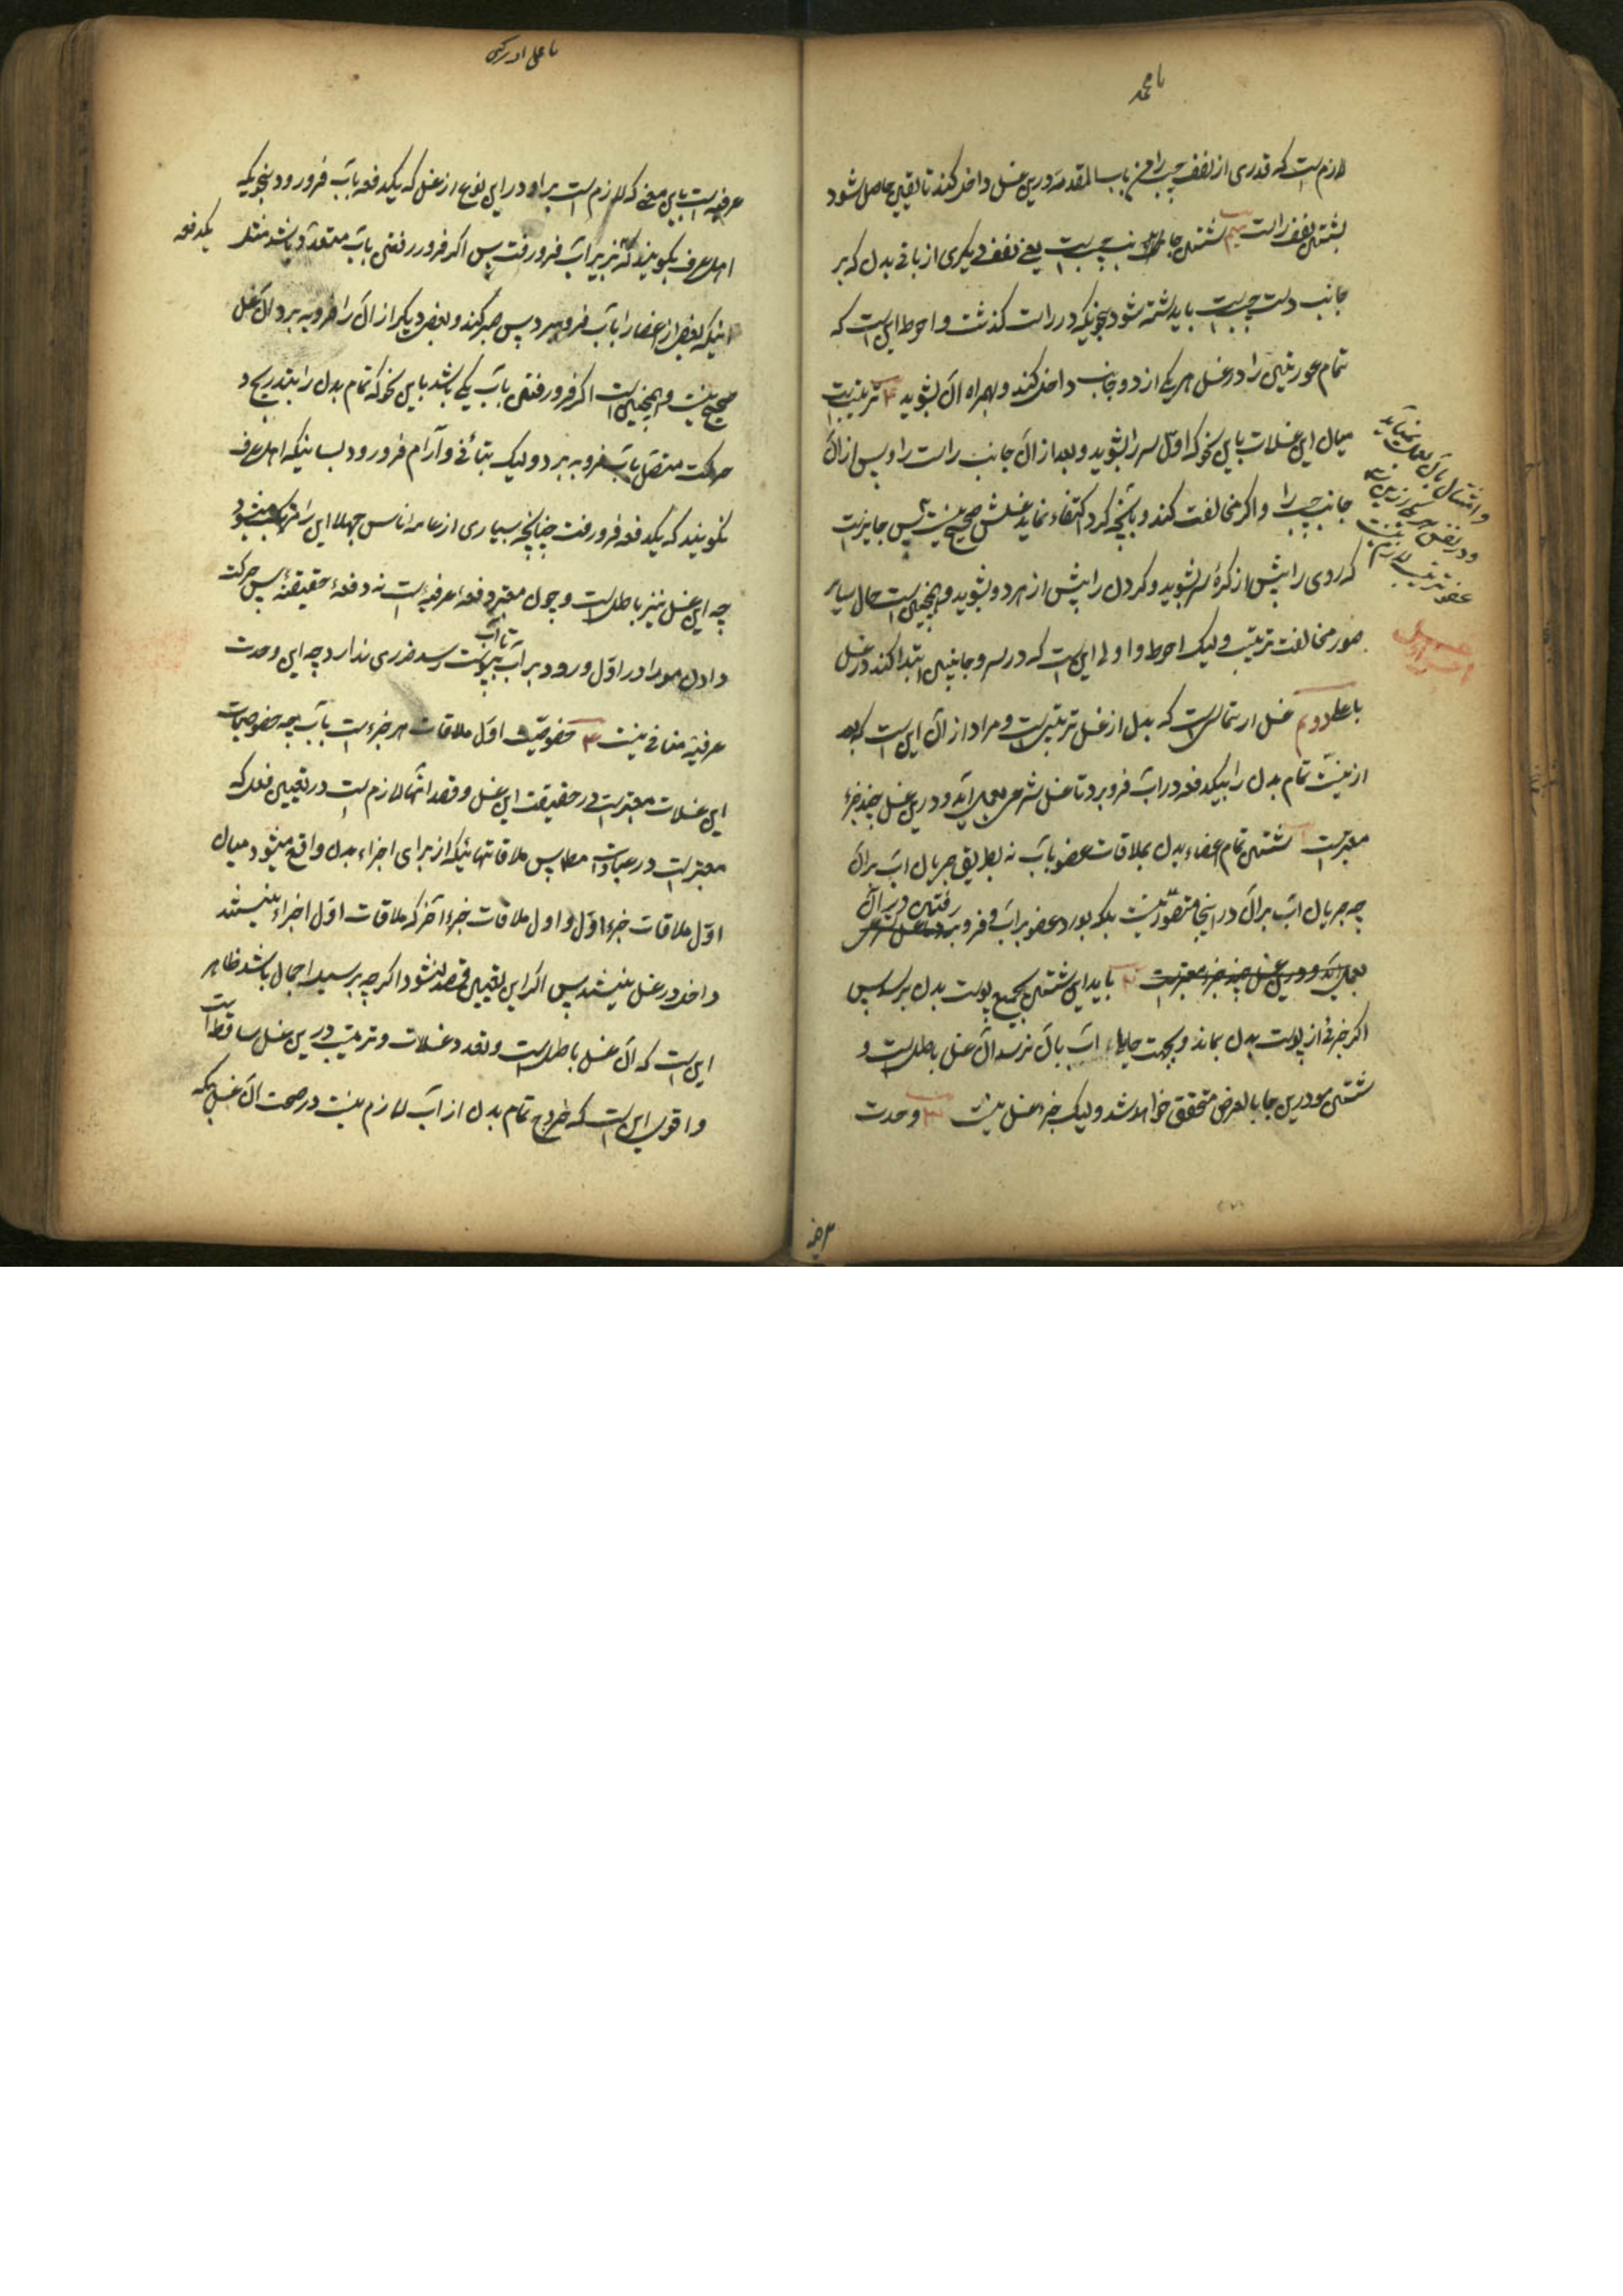 یا محمد
لازم است که قدری از نصف چپ را من باب المقدمه درین غسل داخل کند تا یقین حاصل شود
بشستن نصف راست سیم شستن جانب چپ است یعنی نصف دیکری از باقی بدن که بر
جانب دست چپ است باید شسته شود بنحویکه در راست کذشت و احوط این است که
تمام عورتین را در غسل هر یکی از دو جانب داخل کند و بهمراه آن بشوید ۴ ترتیب است
میان این غسلات باین نحو که اول سر را بشوید و بعد از آن جانب راست را و پس از آن
جانب چپ را و اکر مخالفت کند و بآنچه کرد اکتفاء نماید غسلش صحیح نیست پس جایز نیست
که روی را پیش از سر بشوید و کردن را پیش از هر دو بشوید و همچنین است حال سایر
صور مخالفت ترتیب ولیک احوط و اولی این است که در سر و جانبین ابتدا کند در غسل
باعلا دویم غسل ارتماسی است که بدل از غسل ترتیبی است و مراد از آن این است که بعد
از نیت تمام بدن را بیکدفعه در آب فرو برد تا غسل شرعی بعمل آید و درین غسل چند جزء
معتبر است ۱ شستن تمام اعضاء بدن بملاقات عضو بآب نه بطریق جریان آب بران
چه جریان آب بران در اینجا متصور نیست بلکه بورود عضو بر آب و فرو رفتن در آن
بعمل آید و درین غسل چند جزء معتبر است ۲ باید این شستن بجمیع پوست بدن برسد پس
اکر جزئی از پوست بدن بماند و بجهت حایل آب بآن نرسد آن غسل باطل است و
شستن مو درین جا بالعرض متحقق خواهد شد ولیک جزء غسل نیست ۳ وحدت
یا علی ادرکنی
عرفیه است باین معنی که لازم است براو در این نوع از غسل که یکدفعه بآب فرو رود بنحویکه
اهل عرف بکویند که بزیر آب فرو رفت پس اکر فرو رفتن بآب متعدد باشد مثل
یکدفعه
اینکه بعض از اعضا را بآب فرو برد پس صبر کند و بعض دیکر از آن را فرو برد آن غسل
صحیح نیست و همچنین است اکر فرو رفتن بآب یکی باشد باین نحو که تمام بدن را بتدریج و
حرکت متصل بآب فرو برد ولیک بتأنی و آرام فرو رود بسانیکه اهل عرف
نکویند که یکدفعه فرو رفت چنانچه بسیاری از عامه ناس جهلا این را مرتکب میشود
چه این غسل نیز باطل است و چون معتبر دفعهٔ عرفیه است نه دفعهٔ حقیقیه پس حرکت
دادن مو را در اول ورود بر آب تا آب بپوست رسد ضرری ندارد چه این وحدت
عرفیه منافی نیست ۴ خصوصیت اول ملاقات هر جزء است بآب چه خصوصیات
این غسلات معتبر است در حقیقت این غسل و قصد آنها لازم است در تعیین فعل که
معتبر است در عبادات مطلقا پس ملاقاتهائیکه از برای اجزاء بدن واقع میشود میان
اول ملاقات جزء اول و اول ملاقات جزء آخر که ملاقات اول اجزاء نیستند
داخل در غسل نیستند پس اکر این تعیین قصد نشود اکرچه بر سبیل اجمال باشد ظاهر
این است که آن غسل باطل است و تعدد غسلات و ترتیب درین غسل ساقط است
و اقوی این است که خروج تمام بدن از آب لازم نیست در صحت آن غسل بلکه